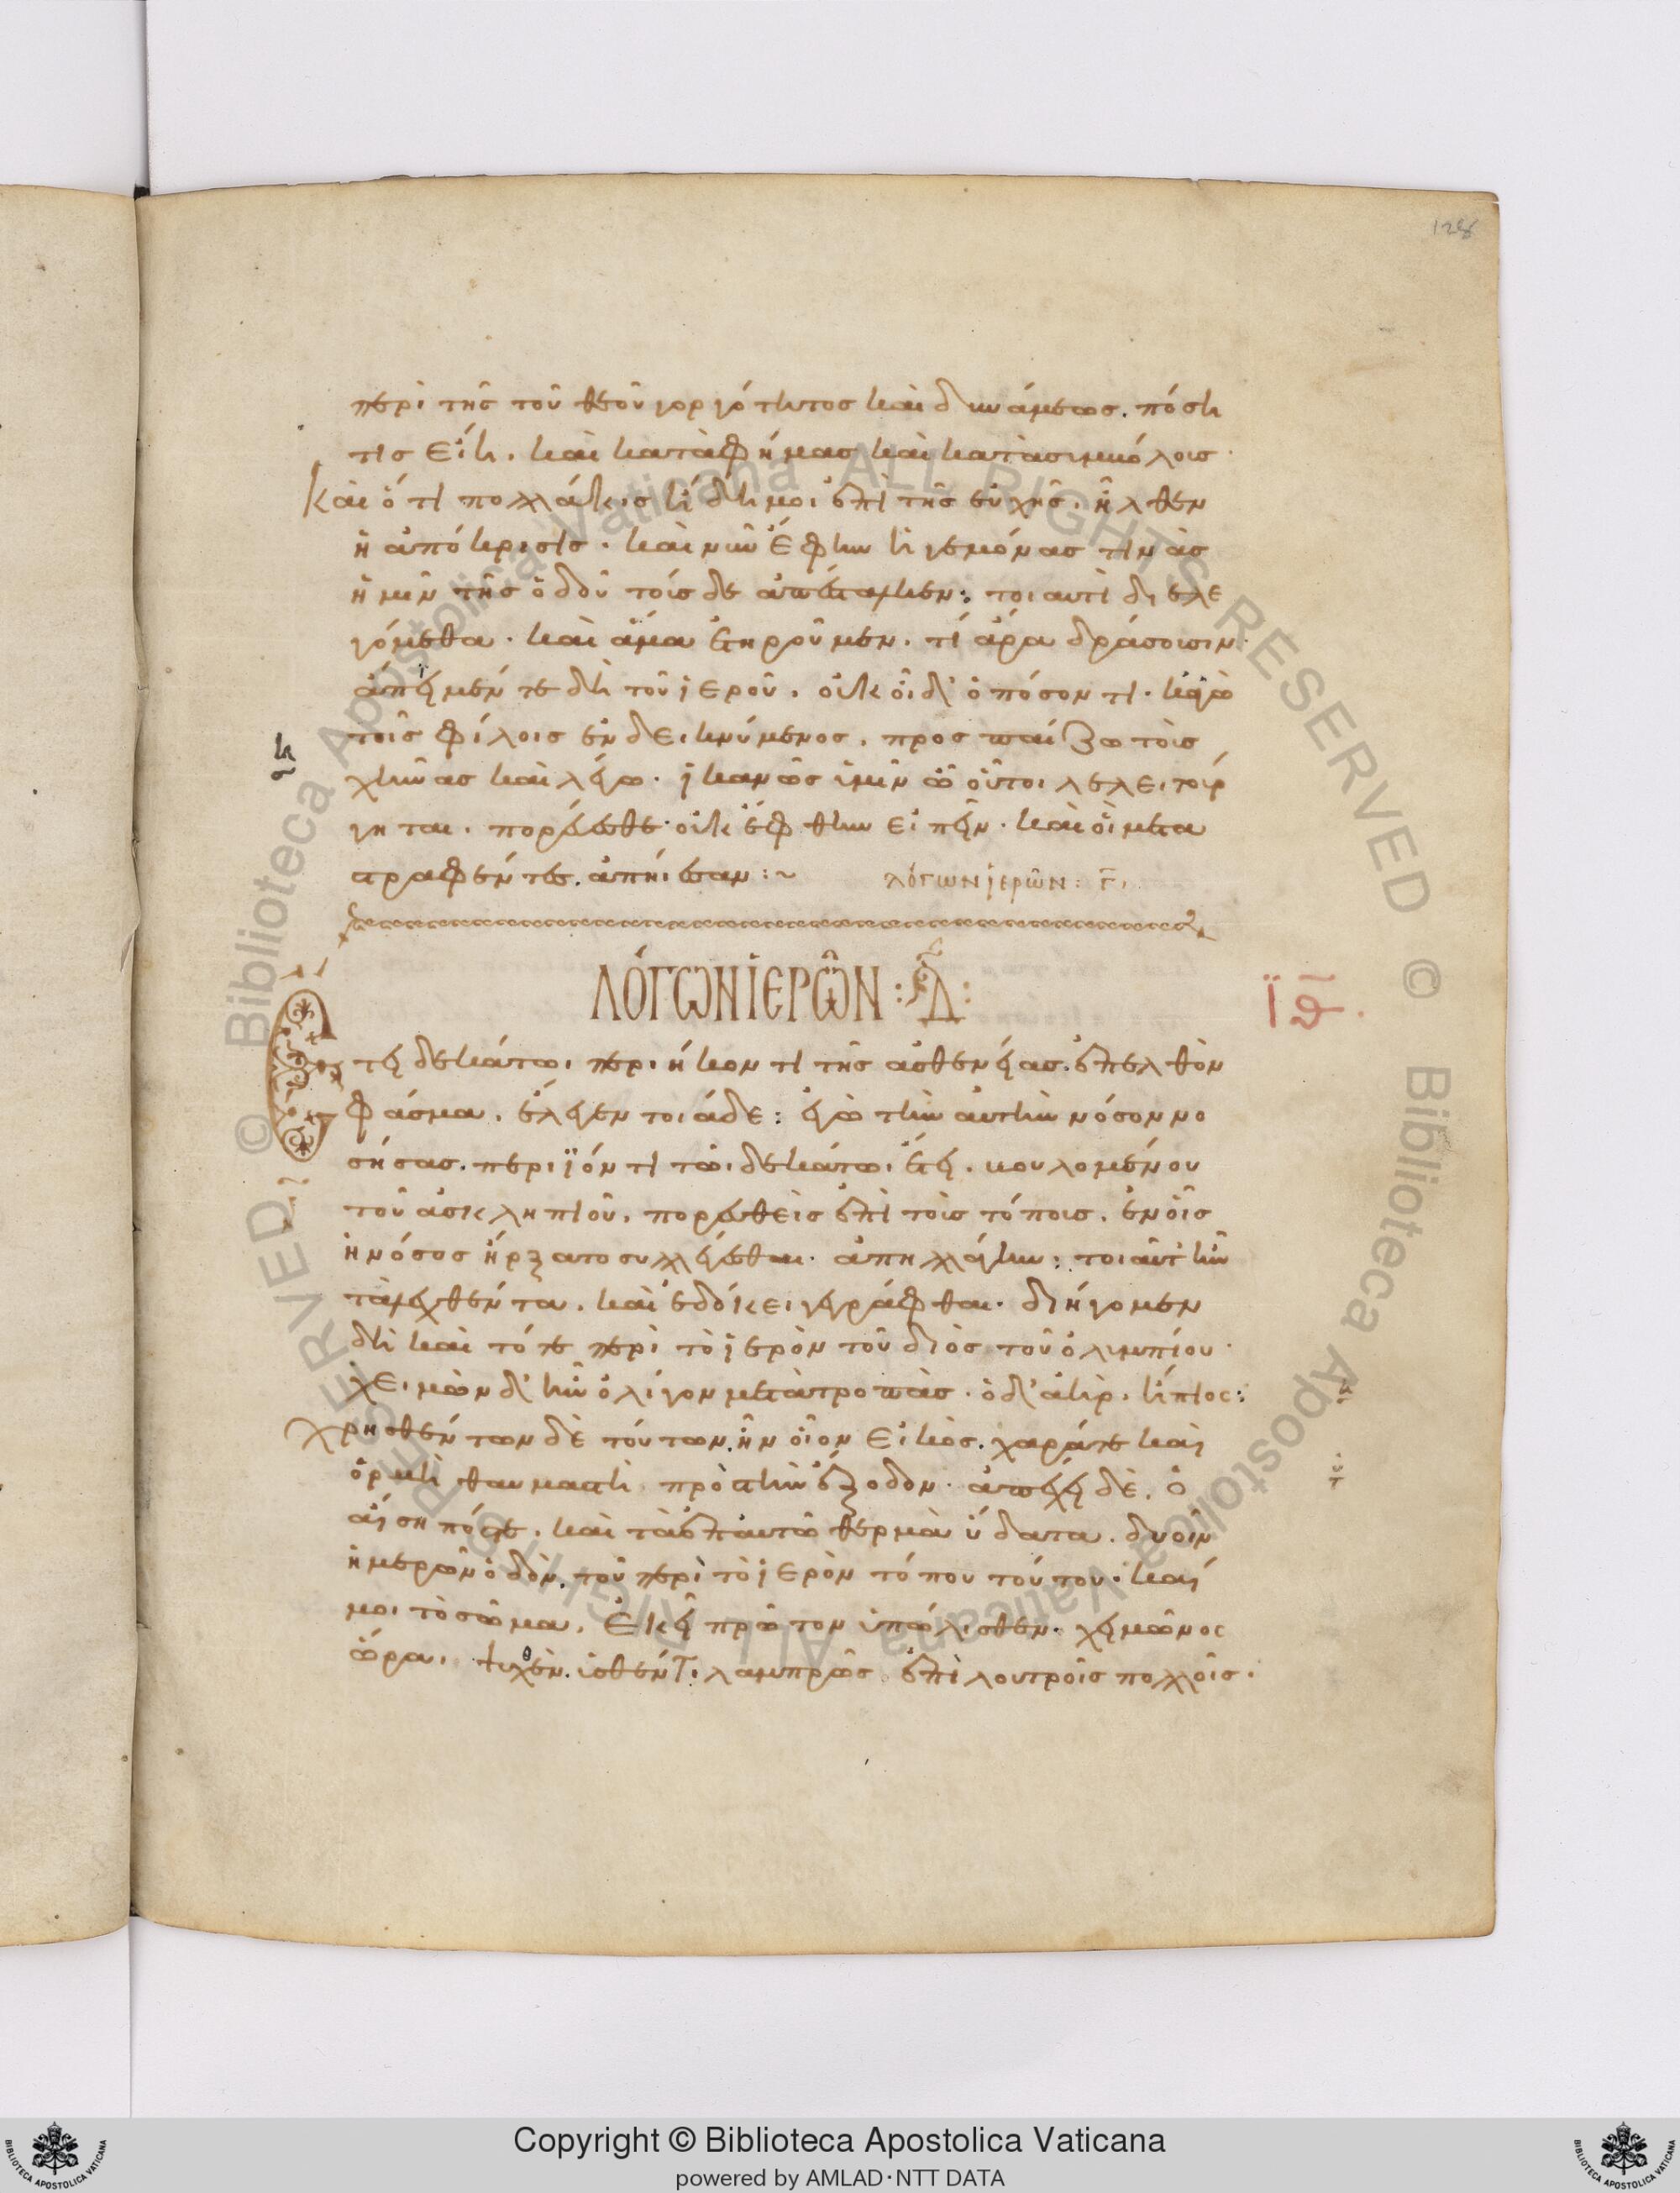 128
περὶ τῆς τοῦ θεοῦ γοργότητος καὶ δυνάμεως. πόση
τις εἴη. καὶ κατὰ φήμας καὶ κατὰ συμβόλοις
Καὶ ὅ τι πολλάκις ἤδη μοι ἐπὶ τῆς εὐχῆς. ἦλθεν
ἡ ἀπόκρισις. καὶ νῦν ἔφην ἡγεμόνας τινὰς
ἡμῖν τῆς ὁδοῦ τούσδε
τοιαυτὶ διελε
γόμεθα. καὶ ἅμα ἐτηροῦμεν. τί ἄρα δράσουσιν.
ἀπῄειμέν τε δὴ τοῦ ἱεροῦ. οὐκ οἶδ' ὁπόσον τι. κἀγὼ
τοῖς φίλοις ἐνδεικνύμενος. προσπαίζω τοῖς
χηνας καὶ λέγω. ἱκανῶς ὑμῖν ὦ οὗτοι λελειτούρ
γηται. πορεύεσθε. οὐκ ἔφθην εἰπεῖν. καὶ οἱ μετα
στραφέντες. ἀπῄεσαν :~ λόγων ἱερῶν: γ̅
ΛΌΓΩΝ ἹΕΡΩ͂Ν : Δ̅ :
ῙΘ̅.
Ἔτει δεκάτωι περιήκοντι τῆς ἀσθενείας. ἐπελθὸν
φάσμα. ἔλεγεν τοιάδε: ἐγὼ τὴν αὐτὴν νόσον νο
σήσας. περιϊόντι τῶι δεκάτωι ἔτει. βουλομένου
τοῦ ἀσκληπιοῦ. πορευθεὶς ἐπὶ τοὺς τόπους. ἐν οἷς
ἡ νόσος ἤρξατο συλλέγεσθαι. ἀπηλλάγην: τοιαῦτ' ἦν
τὰ λεχθέντα. καὶ ἐδόκει γεγράφθαι. διήγομεν
δὴ καὶ τότε περὶ τὸ ἱερὸν τοῦ διὸς τοῦ ὀλυμπίου
χειμὼν δ' ἦν ὀλίγον μετὰ τροπὰς. ὁ δ' ἀὴρ. ἤπιος:
Χρησθέντων δὲ τούτων. ἦν οἷον εἰκὸς. χαρά τε καὶ
ὁρμὴ θαυμαστὴ πρὸς τὴν ἔξοδον. ἀπέχει δὲ. ὁ
αἴσηπός τε. καὶ τὰ ἐπ' αὐτῶ θερμὰ ὕδατα. δυοῖν
ἡμερῶν ὁδὸν. τοῦ περὶ τὸ ἱερὸν τόπου τούτου. καί
μοι τὸ σῶμα. ἐκεῖ πρῶτον ὑπώλισθεν. χειμῶνος
ὥραι. ψυχθὲν. ὑσθέντι λαμπρῶς ἐπὶ λουτροῖς πολλοῖς.
Copyright © Biblioteca Apostolica Vaticana
powered by AMLAD·NTT DATA